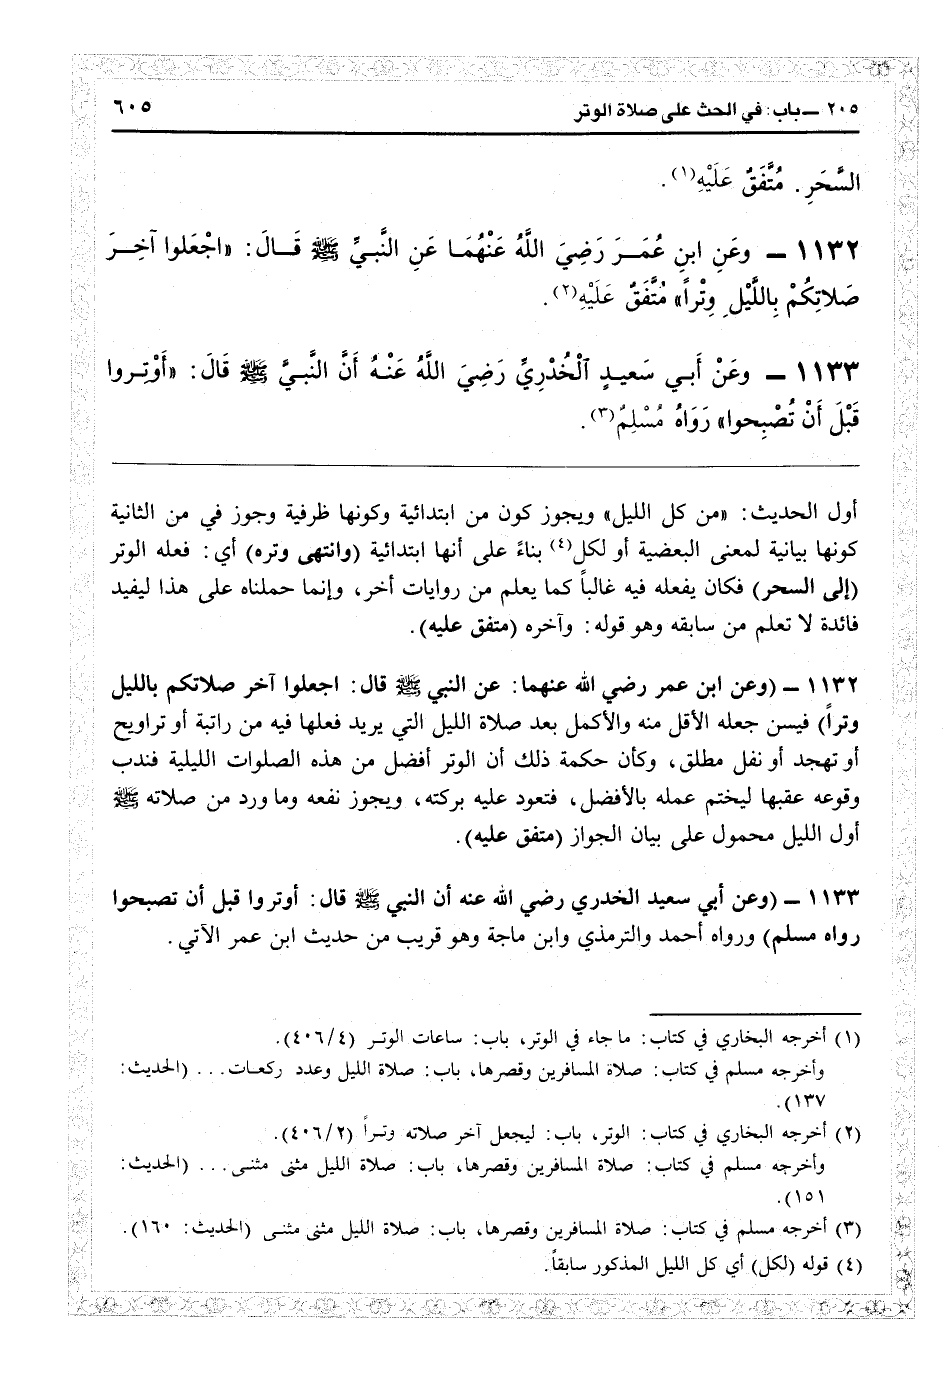 ٢٠٥ ــ باب: في الحث على صلاة الوتر ٦٠٥
السَّحَرِ. مُتَّفَقٌ عَلَيْهِ(١).
١١٣٢ ــ وعَنِ ابنِ عُمَـرَ رَضِيَ اللَّهُ عَنْهُمَـا عَنِ النَّبـيِّ ﷺ قَـالَ: «اجْعَلوا آخِـرَ
صَلاتِكُمْ بِاللَّيْلِ وِتْراً» مُتَّفَقٌ عَلَيْهِ(٢).
١١٣٣ ــ وعَنْ أَبـي سَعيـدٍ ٱلْخُدْرِيِّ رَضِيَ اللَّهُ عَنْـهُ أَنَّ النَّبـيَّ ﷺ قَالَ: «أَوْتِـروا
قَبْلَ أَنْ تُصْبِحوا» رَوَاهُ مُسْلِمٌ(٣).
أول الحديث: «من كل الليل» ويجوز كون من ابتدائية وكونها ظرفية وجوز في من الثانية
كونها بيانية لمعنى البعضية أو لكل(٤) بناءً على أنها ابتدائية (وانتهى وتره) أي: فعله الوتر
(إلى السحر) فكان يفعله فيه غالباً كما يعلم من روايات أخر، وإنما حملناه على هذا ليفيد
فائدة لا تعلم من سابقه وهو قوله: وآخره (متفق عليه).
١١٣٢ ــ (وعن ابن عمر رضي الله عنهما: عن النبي ﷺ قال: اجعلوا آخر صلاتكم بالليل
وتراً) فيسن جعله الأقل منه والأكمل بعد صلاة الليل التي يريد فعلها فيه من راتبة أو تراويح
أو تهجد أو نفل مطلق، وكأن حكمة ذلك أن الوتر أفضل من هذه الصلوات الليلية فندب
وقوعه عقبها ليختم عمله بالأفضل، فتعود عليه بركته، ويجوز نفعه وما ورد من صلاته ﷺ
أول الليل محمول على بيان الجواز (متفق عليه).
١١٣٣ ــ (وعن أبي سعيد الخدري رضي الله عنه أن النبي ﷺ قال: أوتروا قبل أن تصبحوا
رواه مسلم) ورواه أحمد والترمذي وابن ماجة وهو قريب من حديث ابن عمر الآتي.
(١) أخرجه البخاري في كتاب: ما جاء في الوتر، باب: ساعات الوتـر (٤٠٦/٤).
وأخرجه مسلم في كتاب: صلاة المسافرين وقصرها، باب: صلاة الليل وعدد ركعـات... (الحديث:
١٣٧).
(٢) أخرجه البخاري في كتاب: الوتر، باب: ليجعل آخر صلاته وتـراً (٤٠٦/٢).
وأخرجه مسلم في كتاب: صلاة المسافرين وقصرها، باب: صلاة الليل مثنى مثنـى... (الحديث:
١٥١).
(٣) أخرجه مسلم في كتاب: صلاة المسافرين وقصرها، باب: صلاة الليل مثنى مثنـى (الحديث: ١٦٠).
(٤) قوله (لكل) أي كل الليل المذكور سابقاً.